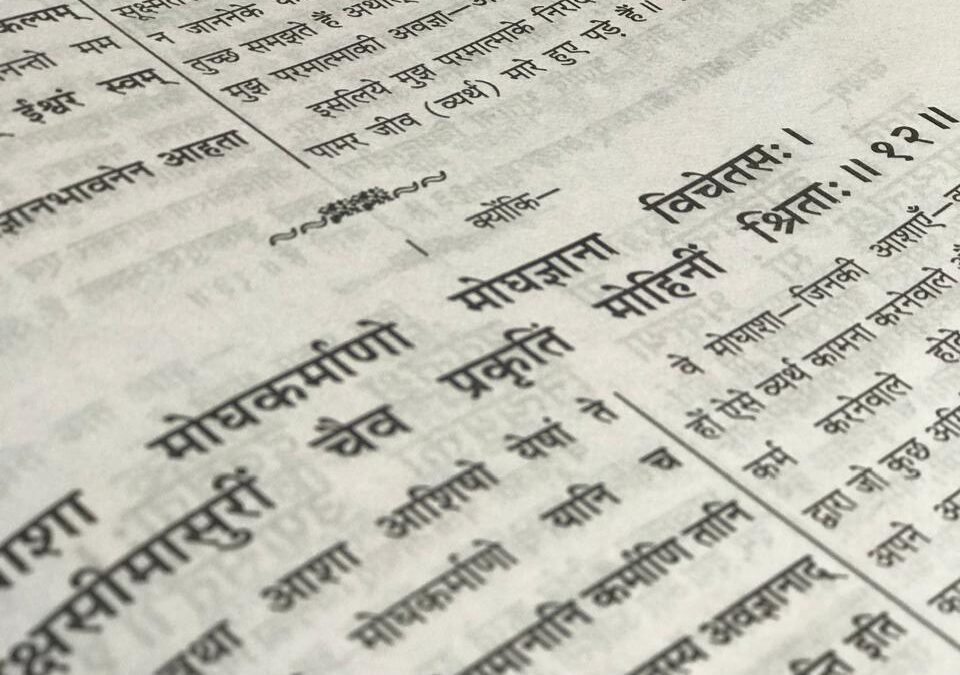 कल्पम्
नन्तो मम
ईश्वरं स्वम्
ज्ञानभावनेन आहता
न जाननेके
तुच्छ समझते हैं अर्थात्
मुझ परमात्माकी अवज्ञा—
इसलिये मुझ परमात्माके
पामर जीव (व्यर्थ) मारे हुए पड़े हैं॥
क्योंकि—
मोघकर्माणो मोघज्ञाना विचेतसः।
चैव प्रकृतिं मोहिनीं श्रिताः॥१२॥
आशा आशिषो येषां ते
मोघकर्माणो यानि च
कर्माणि तानि
अवज्ञानाद्
इति
वे मोघाशा—जिनकी आशाएँ—
हों ऐसे व्यर्थ कामना करनेवाले
कर्म करनेवाले होते
द्वारा जो कुछ
अपने